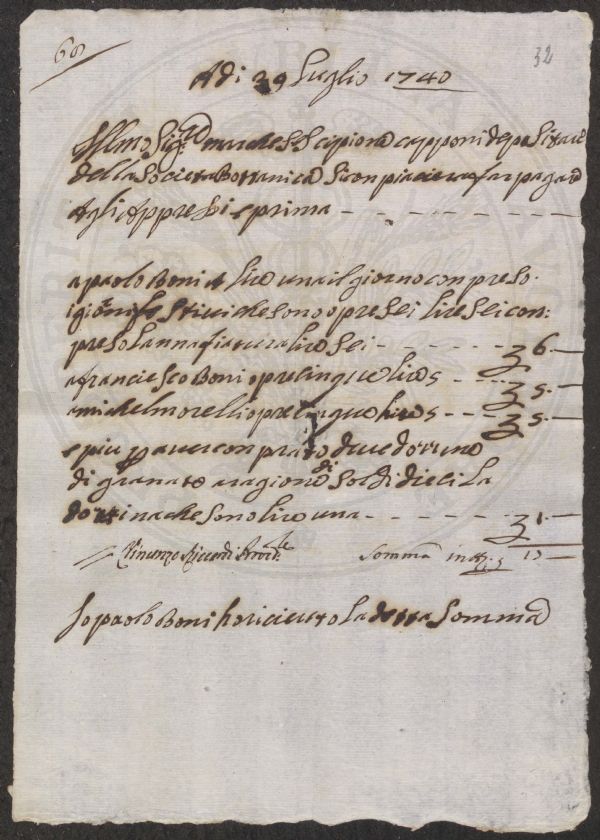 68
32
Adi 29 Luglio 1740
Ill.mo Sig.re marchese Scipione capponi depositare
della Società Bottanica Si conpiacierà far pagare
Agli Appressi e prima
a paolo Boni a lire una il giorno conpreso
i giorni festivi che sono opre sei lire sei con:
preso lannafiatura lire sei 6.—
a franciesco Boni opre cinque lire 5 5.—
a michel morelli opre cinque lire 5 5.—
e piu p avere conprato due dozzine
di granate a ragione di Soldi dieci La
dozzina che sono lire una 1.—
Vincenzo Riccardi Provv.re Somma in tt. 17 —
Io paolo Boni ho riceuto La detta Somma